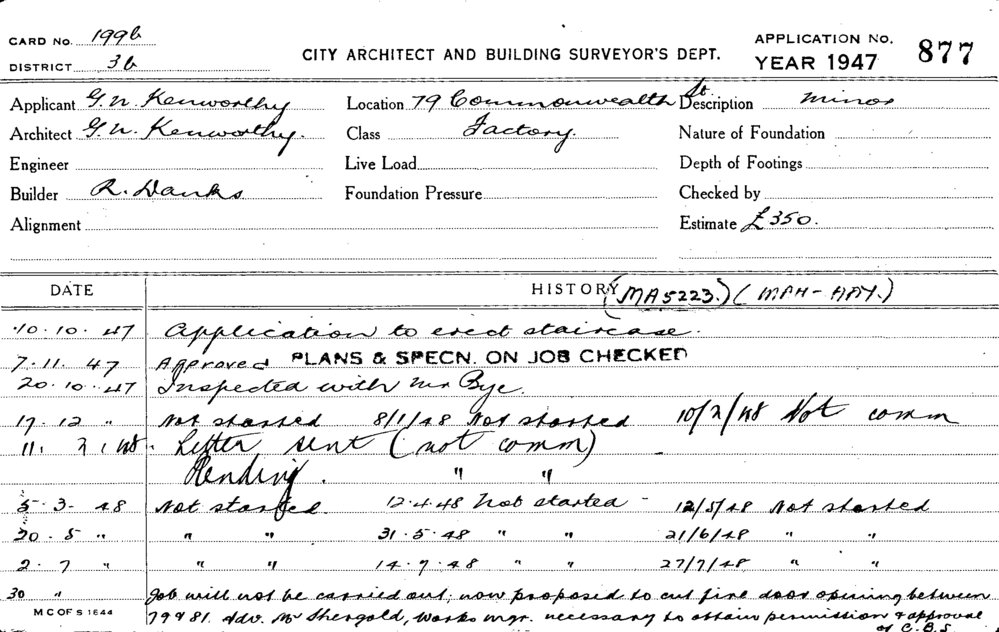 CARD No. 199b
DISTRICT 3b
CITY ARCHITECT AND BUILDING SURVEYOR'S DEPT.
APPLICATION No. 877
YEAR 1947
Applicant G. W. Kenworthy Location 79 Commonwealth St Description minor
Architect G. W. Kenworthy. Class Factory. Nature of Foundation
Engineer Live Load Depth of Footings
Builder R. Danks Foundation Pressure Checked by
Alignment Estimate £350.
DATE HISTORY (MA5223.) (MAH-HAY.)
10.10.47 Application to erect staircase.
7.11.47 Approved PLANS & SPECN. ON JOB CHECKED
20.10.47 Inspected with Mr Bye.
17.12 " Not started 8/1/48 Not started 10/2/48 Not comm
11.2.48. Letter sent (not comm)
Pending. " "
5.3.48 Not started. 12.4.48 Not started - 12/5/48 Not started
20.5 " " " 31.5.48 " " 21/6/48 " "
2.7 " " " 14.7.48 " " 27/7/48 " "
30 " Job will not be carried out, now proposed to cut fire door opening between
79 & 81. Adv. Mr Shergold, Works mgr. necessary to obtain permission & approval
of C.B.S.
M C OF S 1644